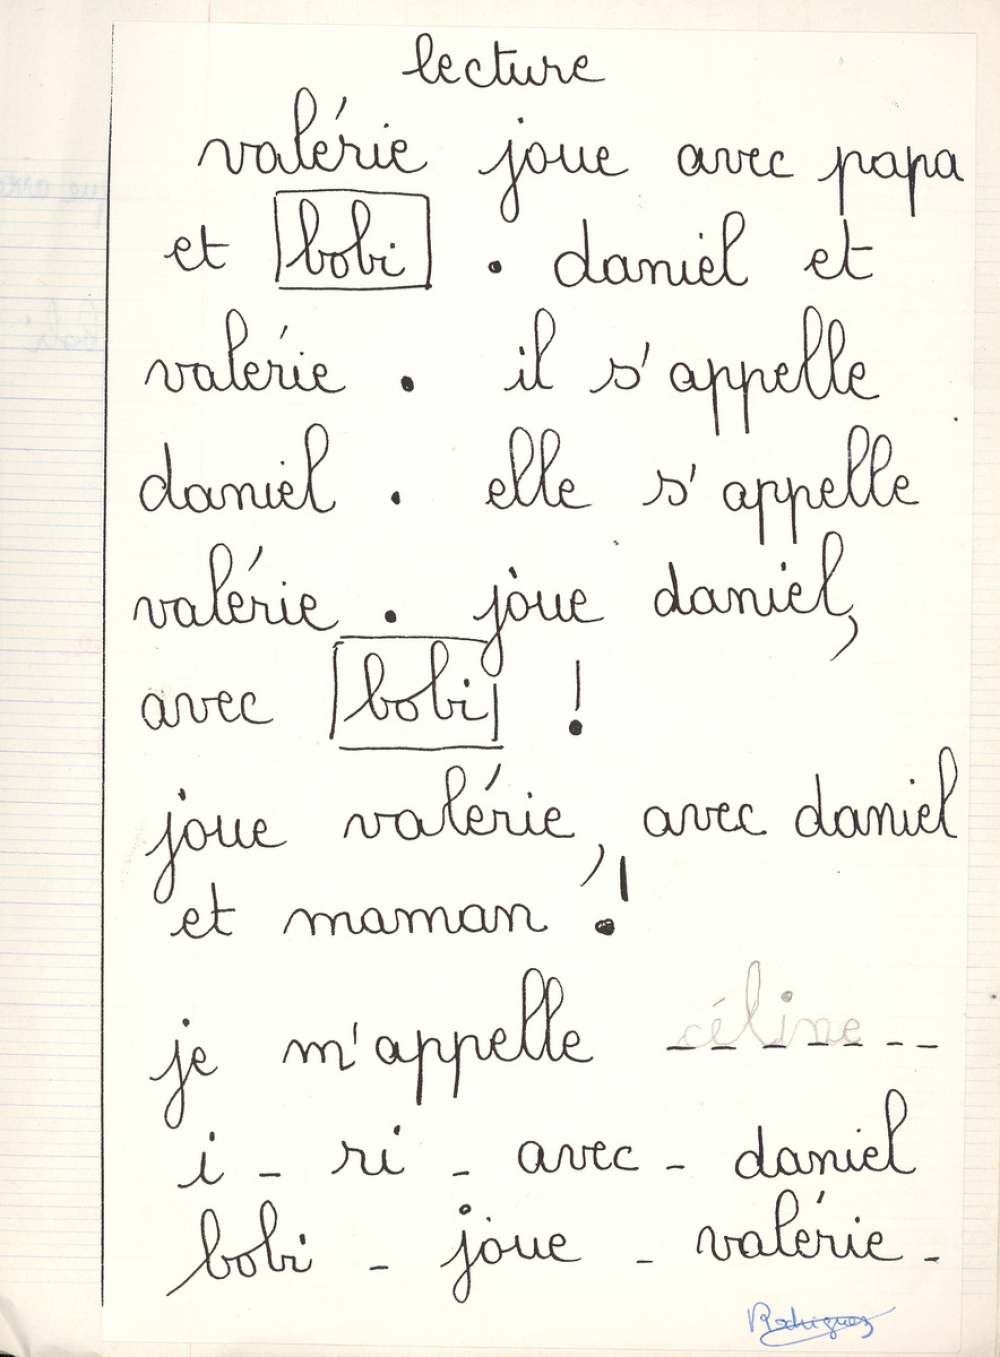 lecture
valérie joue avec papa
et bobi . daniel et
valérie . il s'appelle
daniel . elle s'appelle
valérie . joue daniel,
avec bobi !
joue valérie, avec daniel
et maman !
je m'appelle céline
i - ri - avec - daniel
bobi - joue - valérie -
Rodriguez